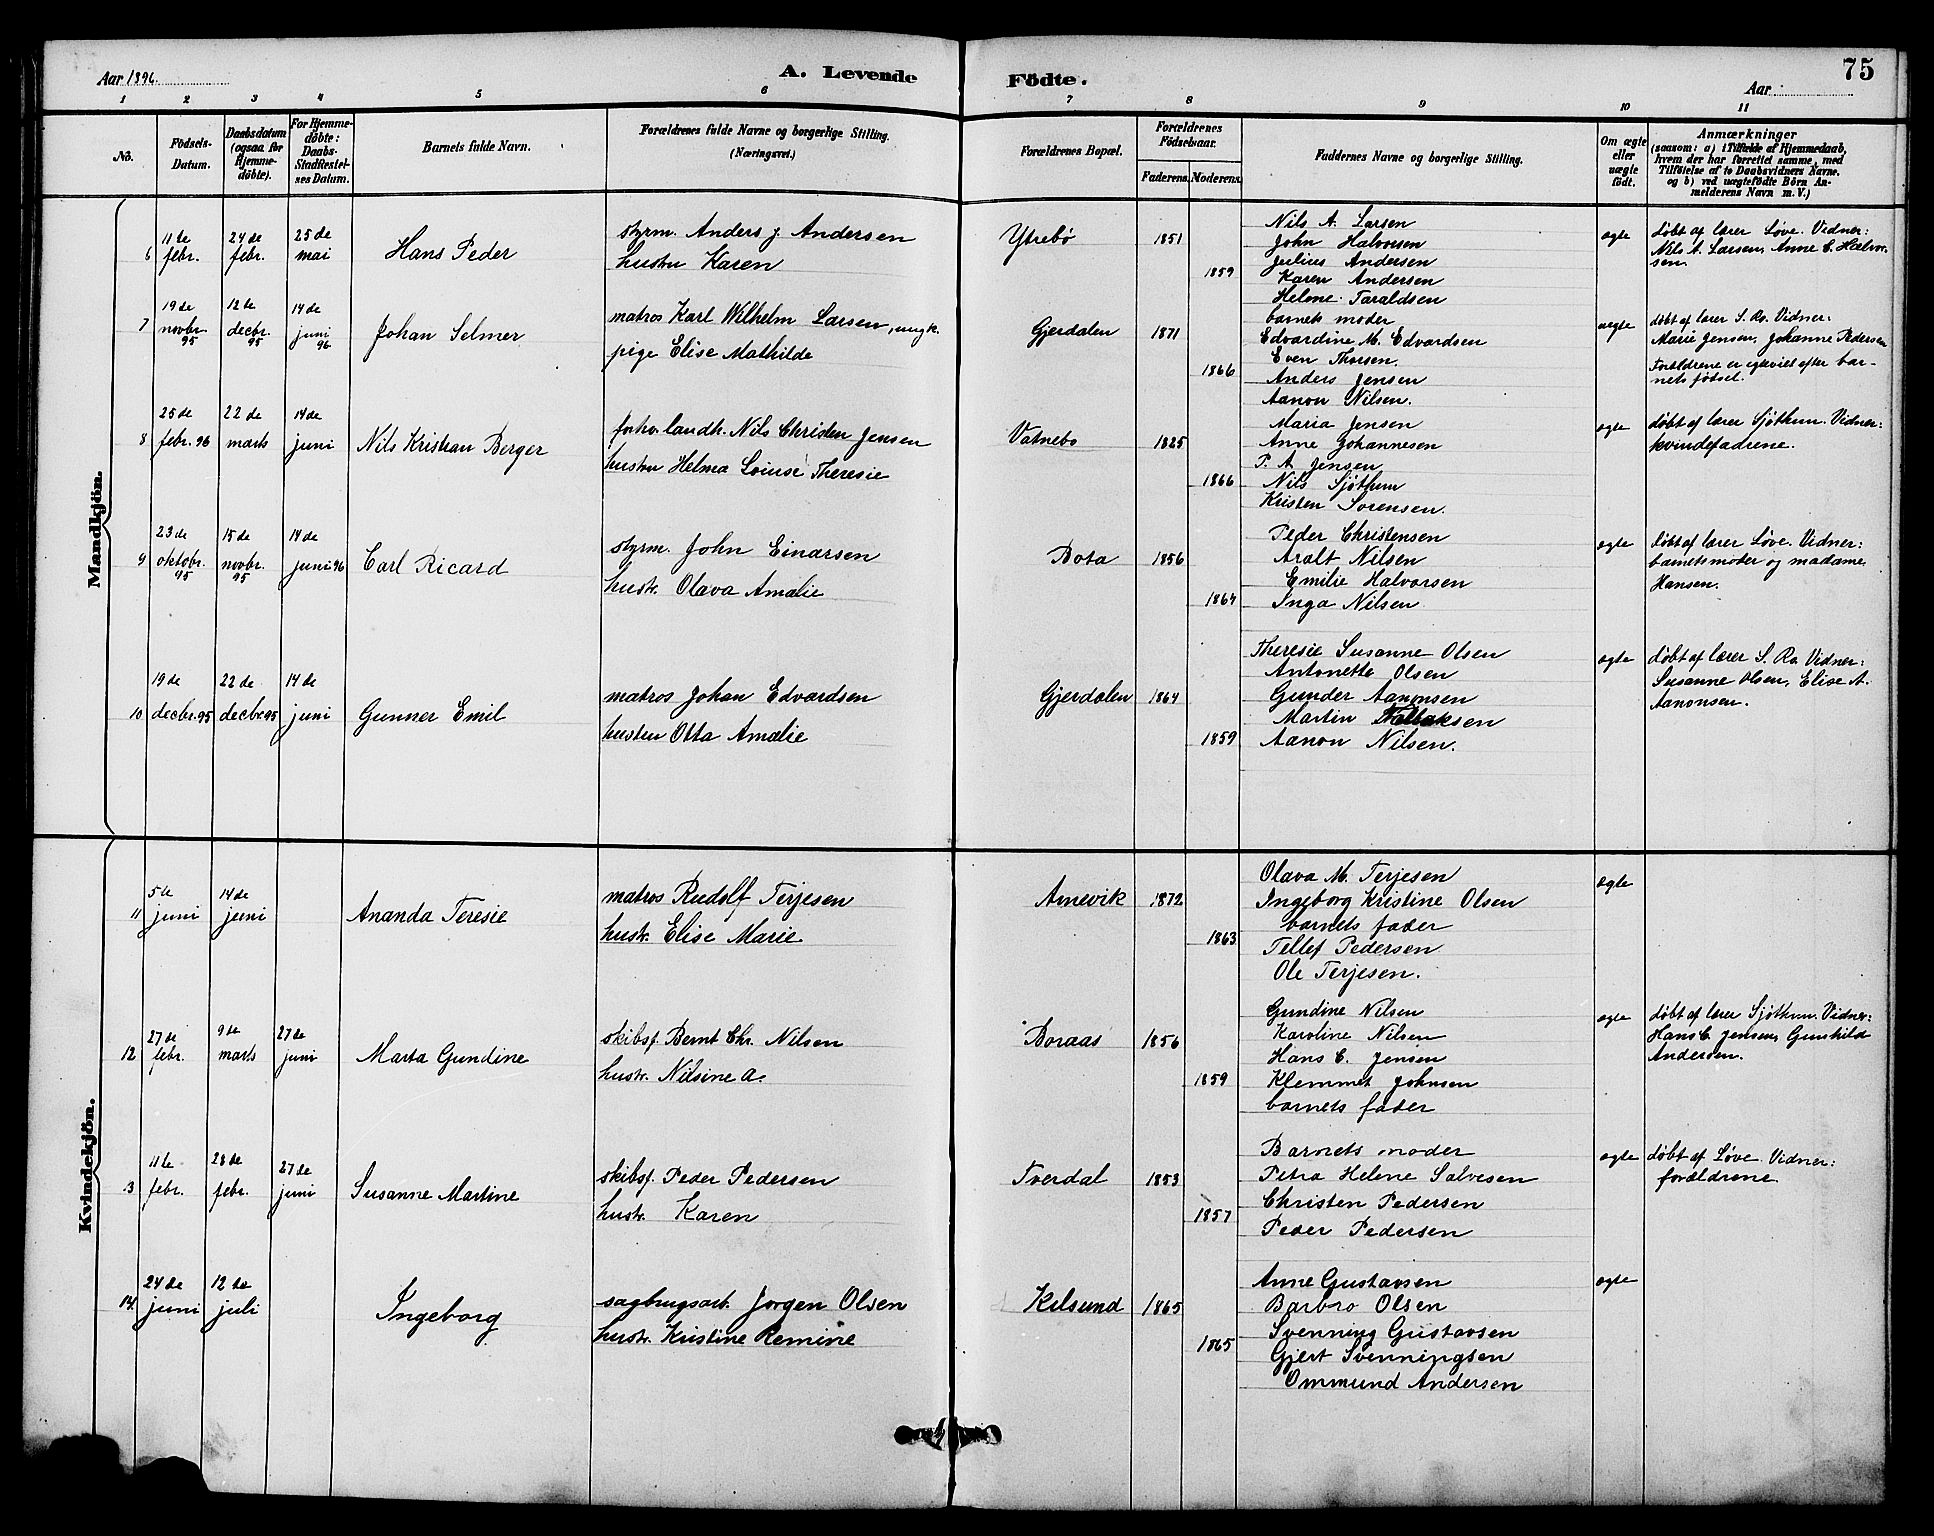 Aar 1896. A. Levende Födte. Aar 75
1 2 3 4 5 6 7 8 9 10 11
No. Födsels-Datum. Daabsdatum (ogsaa for Hjemme-döbte). For Hjemme-döbte: Daabs-Stadfæstel-ses Datum. Barnets fulde Navn. Forældrenes fulde Navne og borgerlige Stilling. (Næringsvei.) Forældrenes Bopæl. Forældrenes Födselsaar. Faderens. Moderens. Faddernes Navne og borgerlige Stilling. Om ægte eller uægte födt. Anmærkninger (saasom: a) i Tilfælde af Hjemmedaab, hvem der har forrettet samme, med Tilföielse af to Daabsvidners Navne. og b) ved uægtefödte Börn An-melderens Navn m. V.)
Mandkjön.
6 11te febr. 24de febr. 25de mai Hans Peder styrm. Anders J. Andersen
hustru Karen
Ytrebö 1851 1859
Nils A. Larsen
John Halvorsen
Julius Andersen
Karen Andersen
Helene Taraldsen
ægte
döbt af lærer Löve. Vidner:
Nils A. Larsen, Anne C. Halvor-
sen.
7 19de novbr. 95 12te decbr. 95 14de juni 96 Johan Selmer matros Karl Wilhelm Larsen, ungk.
pige Elise Mathilde
Gjerdalen 1871 1866
barnets moder
Edvardine M. Edvardsen
Even Thorsen.
Anders Jensen
Aanon Nilsen.
uegte
döbt af lærer S. Ro. Vidner:
Marie Jensen, Johanne Pedersen
Forældrene er egteviet efter bar-
nets födsel.
8 25de febr. 96 22de marts 14de juni Nils Kristian Berger forhv. landh. Nils Christen Jensen
hustru Helma Louise Theresie
Vatnebo 1825 1866
Maria Jensen
Anne Johannesen
P. A. Jensen
Nils Sjöthun
Kristen Sorensen.
ægte
döbt af lærer Sjöthun. Vidner:
kvindefadrene.
9 23de oktobr. 95 15de novbr. 95 14de juni 96 Carl Ricard styrm. John Einarsen
hustr. Olava Amalie
Bota 1856 1864
Peder Christensen
Aralt Nilsen
Emilie Halvorsen
Inga Nilsen
ægte
döbt af lærer Löve. Vidner:
barnets moder og madame
Hansen.
10 19de decbr. 95 22de decbr. 95 14de juni Gunner Emil matros Johan Edvardsen
hustru Otta Amalie
Gjerdalen 1864 1859
Theresie Susanne Olsen
Antonette Olsen
Gunder Aanonsen
Martin Tallaksen
Aanon Nilsen.
ægte
döbt af lærer S. Ro. Vidner:
Susanne Olsen, Elise A.
Aanonsen.
Kvindekjön.
11 5te juni 14de juni Ananda Teresie matros Rudolf Terjesen
hustr. Elise Marie
Arnevik 1872 1863
Olava M. Terjesen
Ingeborg Kristine Olsen
barnets fader
Tellef Pedersen
Ole Terjesen.
ægte
12 27de febr. 9de marts 27de juni Marta Gundine skibsf. Bernt Chr. Nilsen
hustr. Nilsine A.
Boraas 1856 1859
Gundine Nilsen
Karoline Nilsen
Hans C. Jensen
Klemmet Johnsen
barnets fader
ægte
döbt af lærer Sjöthun. Vidner:
Hans C. Jensen, Gunhild
Andersen.
13 11te febr. 28de febr. 27de juni Susanne Martine skibsf. Peder Pedersen
hustr. Karen
Tverdal 1853 1857
Barnets moder
Petra Helene Salvesen
Christen Pedersen
Peder Pedersen
ægte
döbt af Löve. Vidner:
forældrene.
14. 24de juni 12te juli Ingeborg sagbrugsarb. Jorgen Olsen
hustr. Kristine Remine
Kilsund 1865 1865
Anne Gustavsen
Barbro Olsen
Svenning Gustavsen
Gjert Svenningsen
Ommund Andersen
ægte